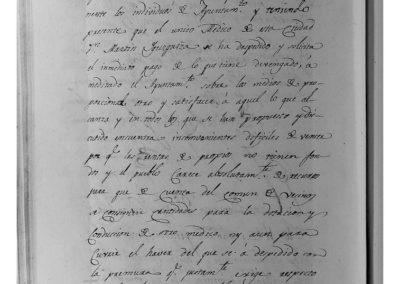 nente los individuos de Ayuntam.to y teniendo
presente que el unico Medico de esta Ciudad
D.n Martin se ha despedido y solicita
el inmediato pago de lo que tiene devengado, á
meditado el Ayuntam.to sobre los medios de pro-
porcionar otro y satisfacer á aquel lo que al
canza y en todos los que se han propuesto y dis-
currido encuentra inconvenientes dificiles de vencer
por q.e las rentas de propios no tienen fon-
dos y el pueblo carece absolutam.te de recursos
para que de cuenta del comun de vecinos
se cantidades para la dotacion y
conduccion de otro medico, ny aun para
cubrir el haver del que se á despedido con
la premura q.e exige respecto